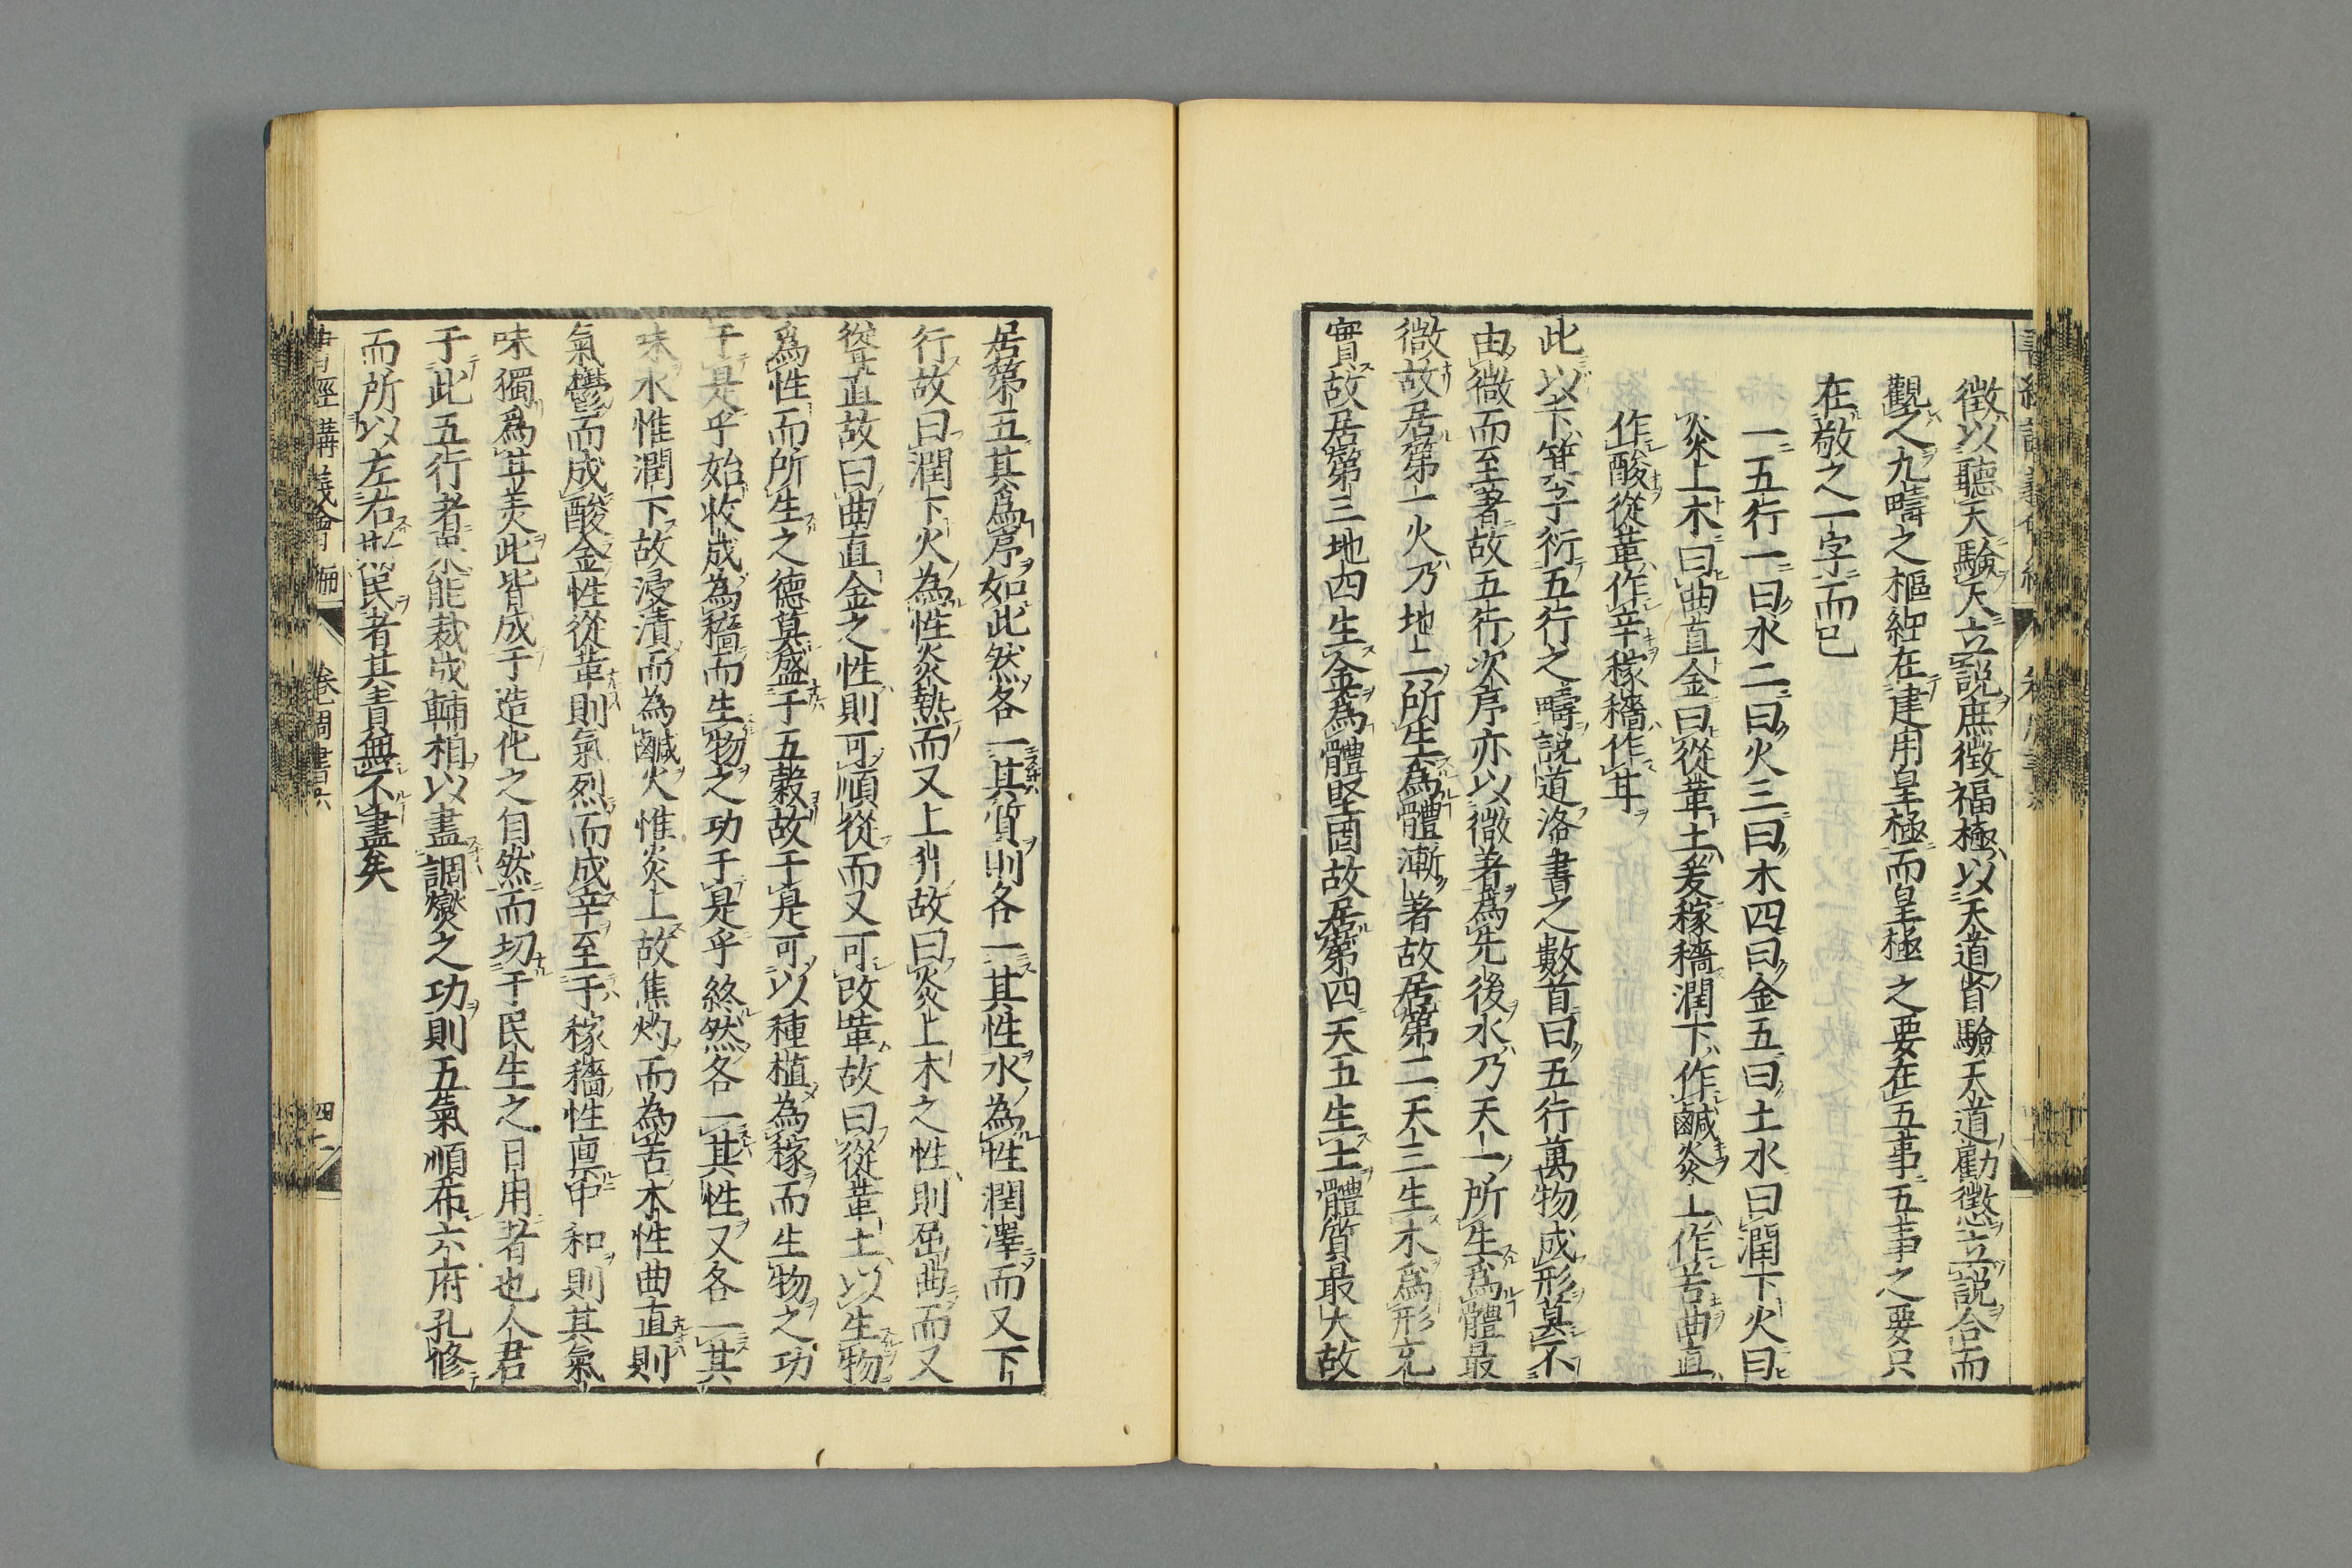 徵以聽天驗天立說庶徵福極以天道省驗天道勸懲立說合而
觀之九疇之樞紐在建用皇極而皇極之要在五事五事之要只
在敬之一字而已
一五行一曰水二曰火三曰木四曰金五曰土水曰潤下火曰
炎上木曰曲直金曰從革土爰稼穡潤下作鹹炎上作苦曲直
作酸從革作辛稼穡作甘
此以下箕子衍五行之疇說道洛書之數首曰五行萬物成形莫不
由微而至著故五行次序亦以微著為先後水乃天一所生為體最
微故居第一火乃地二所生為體漸著故居第二天三生木為形充
實故居第三地四生金為體堅固故居第四天五生土體質最大故
居第五其為序如此然各一其質則各一其性水為性潤澤而又下
行故曰潤下火為性炎熱而又上升故曰炎上木之性則屈曲而又
聳直故曰曲直金之性則可順從而又可改革故曰從革土以生物
為性而所生之德莫盛于五穀故于是可以種植為稼而生物之功
于是乎始收成為穡而生物之功于是乎終然各一其性又各一其
味水惟潤下故浸漬而為鹹火惟炎上故焦灼而為苦木性曲直則
氣鬱而成酸金性從革則氣烈而成辛至于稼穡性稟中和則其氣
味獨為甘美此皆成于造化之自然而切于民生之日用者也人君
于此五行者果能裁成輔相以盡調燮之功則五氣順布六府孔修
而所以左右民者其責無不盡矣
書經講義會編 卷 周書六 四十